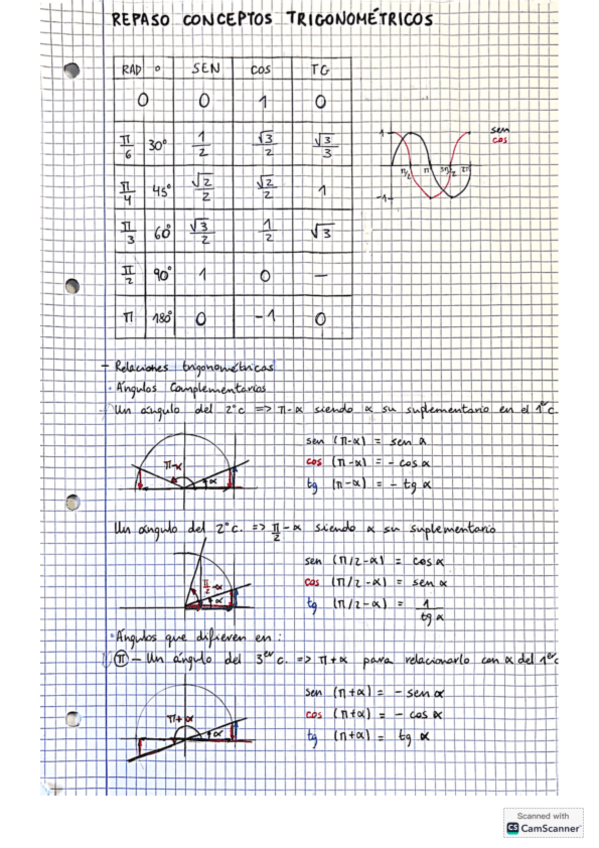 REPASO CONCEPTOS TRIGONOMÉTRICOS
RAD º SEN COS TG
0 0 1 0
π/6 30º 1/2 √3/2 √3/3
π/4 45º √2/2 √2/2 1
π/3 60º √3/2 1/2 √3
π/2 90º 1 0 —
π 180º 0 -1 0
sen
cos
1
π/2 π 3π/2 2π
-1
- Relaciones trigonométricas
· Ángulos Complementarios
- Un ángulo del 2ºc => π-α siendo α su suplementario en el 1er c.
sen (π-α) = sen α
cos (π-α) = - cos α
tg (π-α) = - tg α
π-α
α
Un ángulo del 2ºc. => π/2 - α siendo α su suplementario
sen (π/2-α) = cos α
cos (π/2-α) = sen α
tg (π/2-α) = 1/tg α
π/2-α
α
· Ángulos que difieren en:
π - Un ángulo del 3er c. => π+α para relacionarlo con α del 1er c
sen (π+α) = - sen α
cos (π+α) = - cos α
tg (π+α) = tg α
π+α
α
Scanned with
CS CamScanner